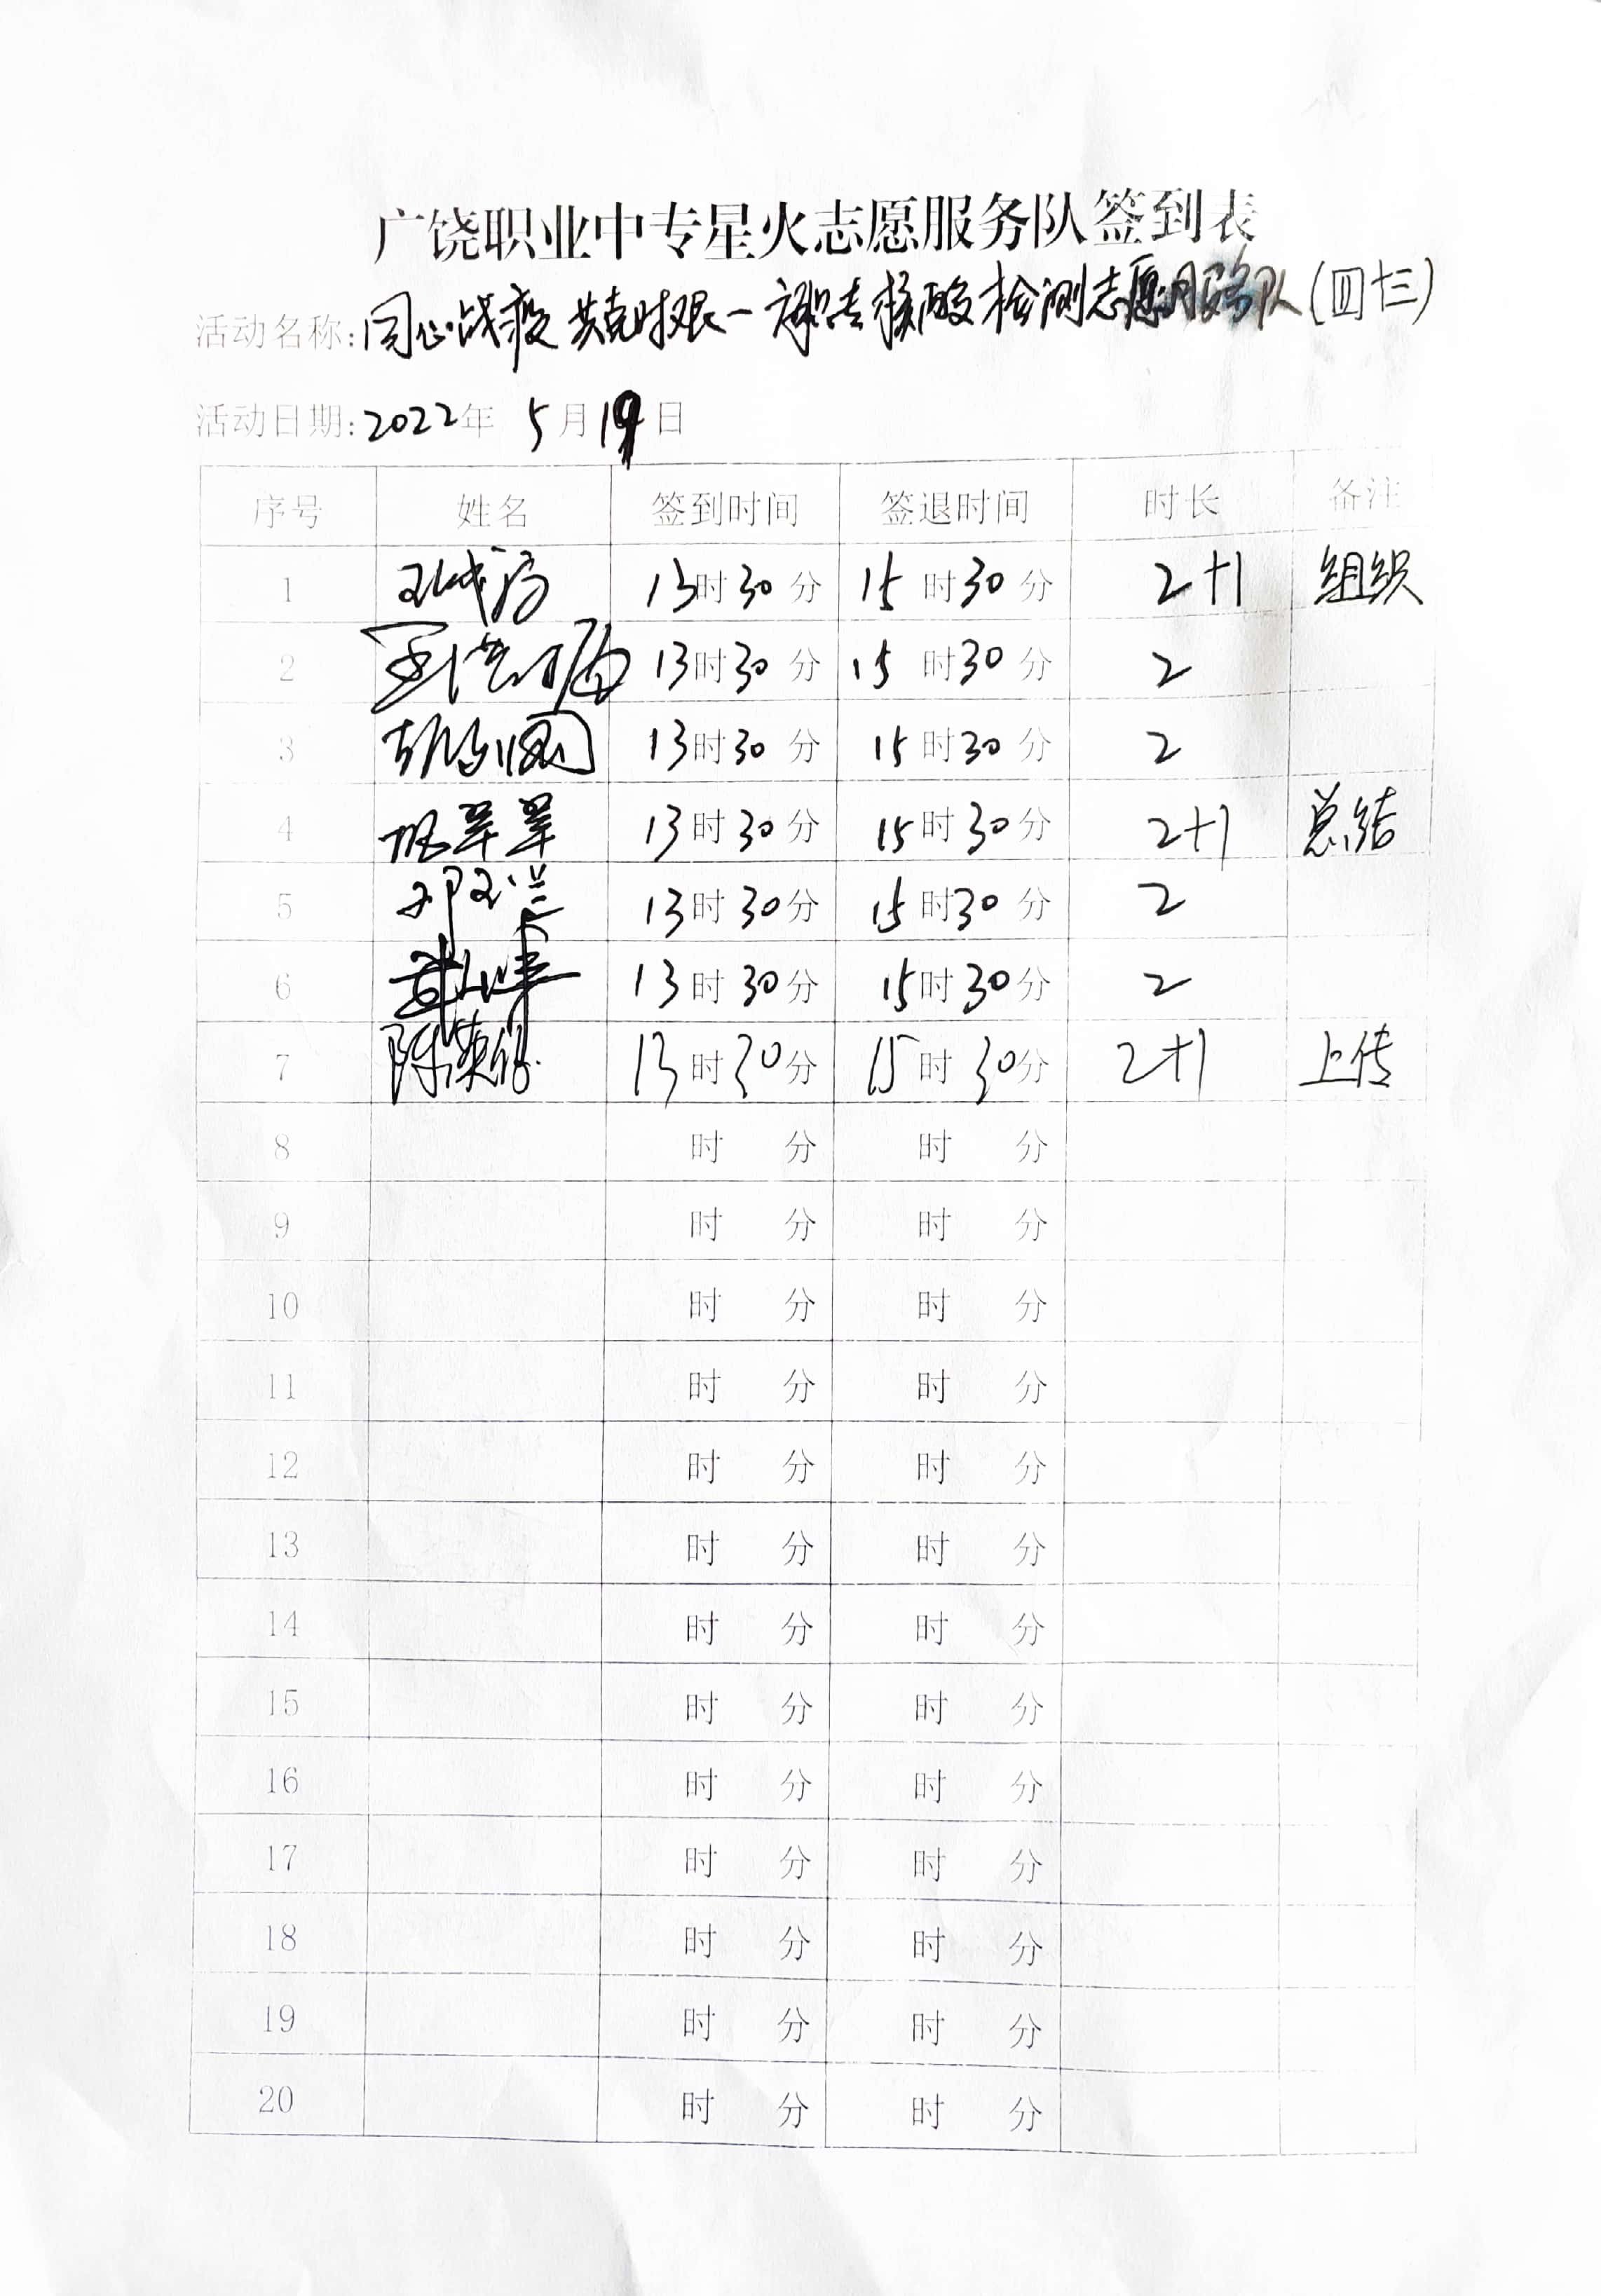 广饶职业中专星火志愿服务队签到表
活动名称: 同心战疫 共克时艰一 核酸检测志愿服务队(四十三)
活动日期: 2022年 5月19日
序号 姓名 签到时间 签退时间 时长 备注
1 13时30分 15时30分 2+1 组织
2 13时30分 15时30分 2
3 13时30分 15时30分 2
4 13时30分 15时30分 2+1 总结
5 邓玉兰 13时30分 15时30分 2
6 13时30分 15时30分 2
7 陈英 13时30分 15时30分 2+1 上传
8 时 分 时 分
9 时 分 时 分
10 时 分 时 分
11 时 分 时 分
12 时 分 时 分
13 时 分 时 分
14 时 分 时 分
15 时 分 时 分
16 时 分 时 分
17 时 分 时 分
18 时 分 时 分
19 时 分 时 分
20 时 分 时 分